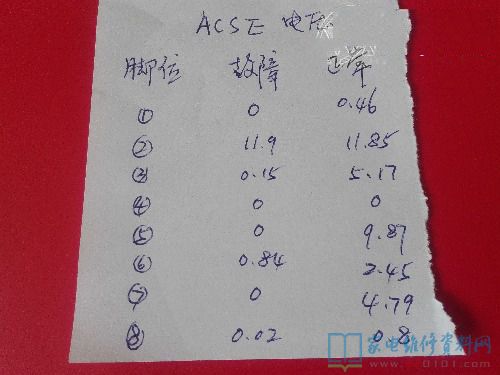 ACSE 电压
脚位 故障 正常
① 0 0.46
② 11.9 11.85
③ 0.15 5.17
④ 0 0
⑤ 0 9.87
⑥ 0.84 2.45
⑦ 0 4.79
⑧ 0.02 0.8
家电维修资料网
0101.com